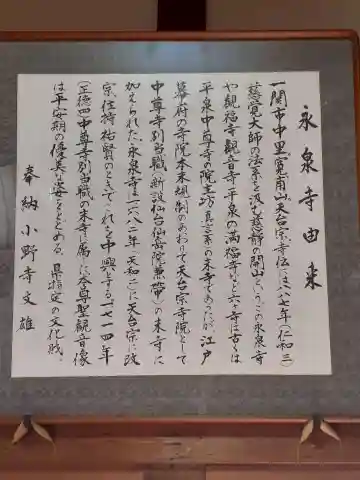 永泉寺由来
一関市中里寛甫山天台宗、寺伝には八八七年（仁和三）
慈覚大師の法系を汲む慈静の開山という。この永泉寺
や観福寺、観音寺、平泉の満福寺など六ヶ寺は古くは
平泉中尊寺の院主坊、真言系の末寺であったが、江戸
幕府の寺院本末規制のあおりで天台宗寺院として
中尊寺別当職（新設仙台仙岳院兼帯）の末寺に
加えられた。永泉寺は一六八二年（天和二）に天台宗に改
宗、住持祐賢のときで、これを中興とする。一七一四年
（正徳四）中尊寺別当職の末寺に属した。本尊聖観音像
は平安期の優美な姿をとどめる。県指定の文化財。
奉納 小野寺文雄